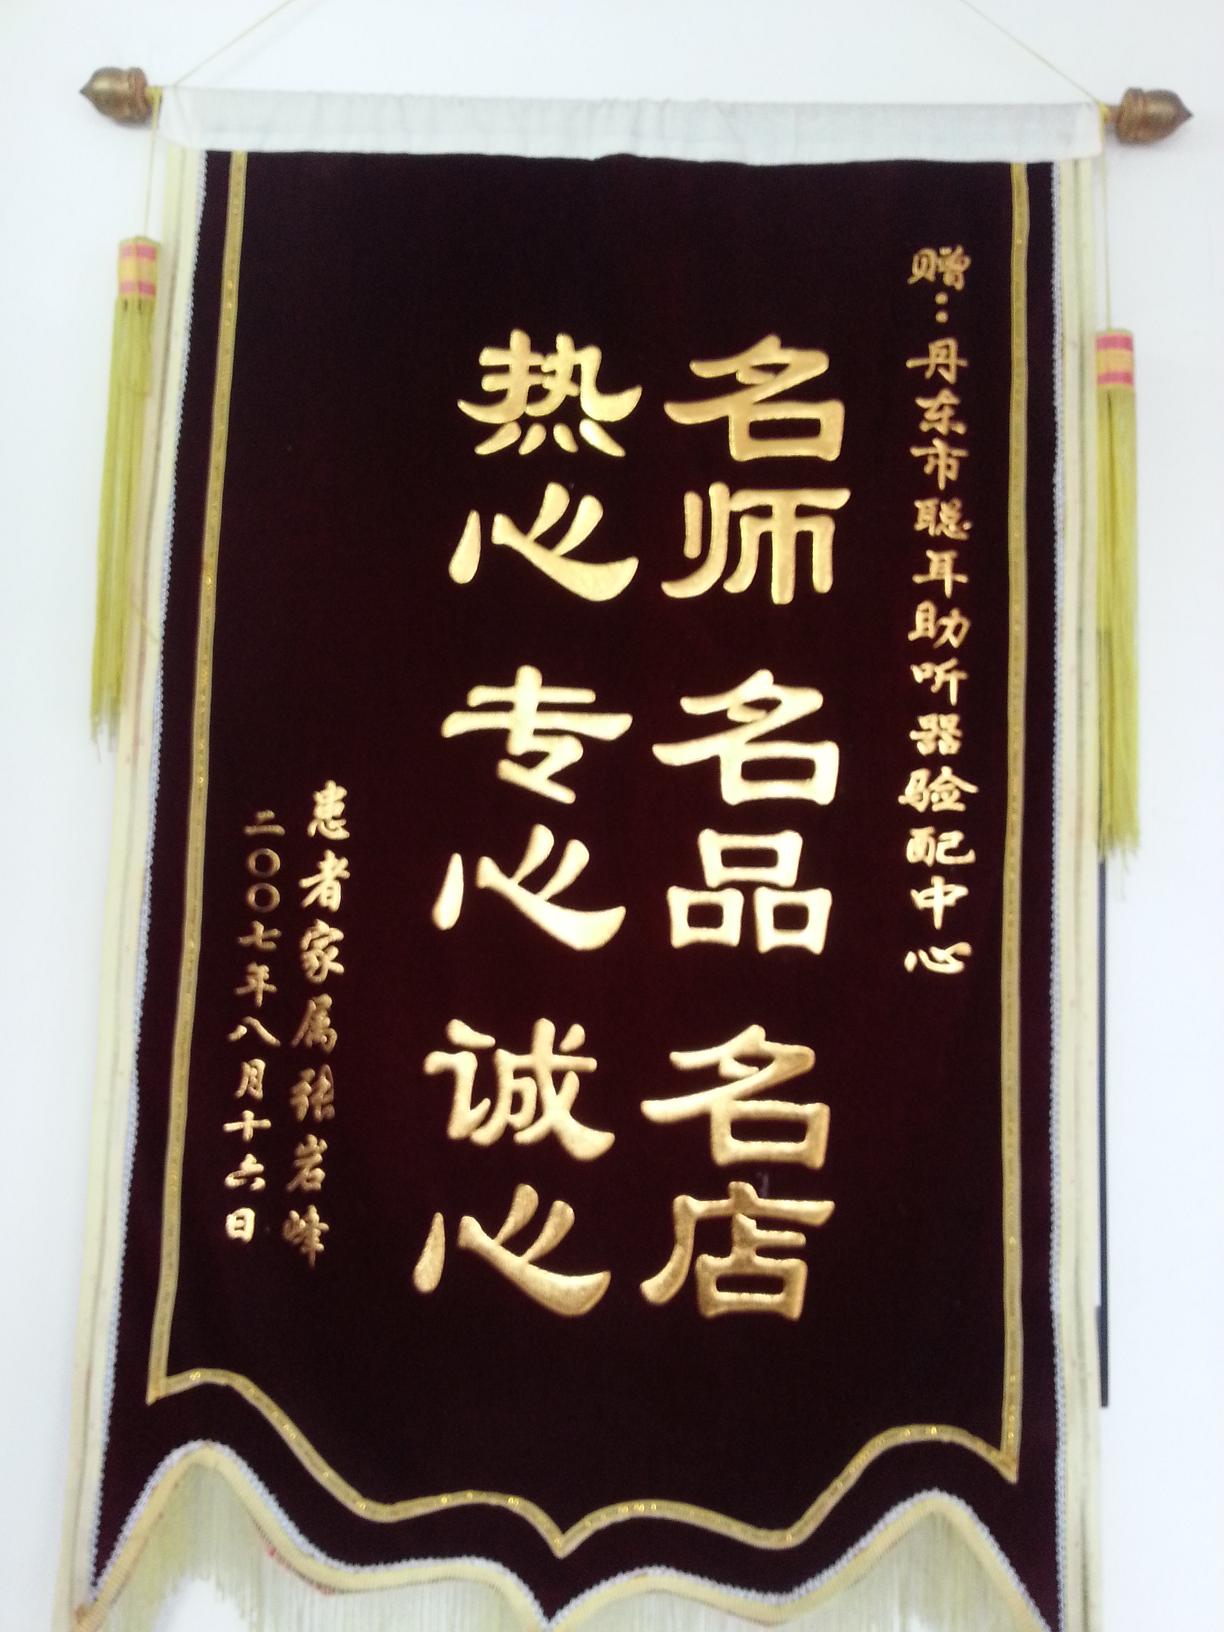 赠：丹东市聪耳助听器验配中心
名师 名品 名店
热心 专心 诚心
患者家属张岩峰
二〇〇七年八月十六日